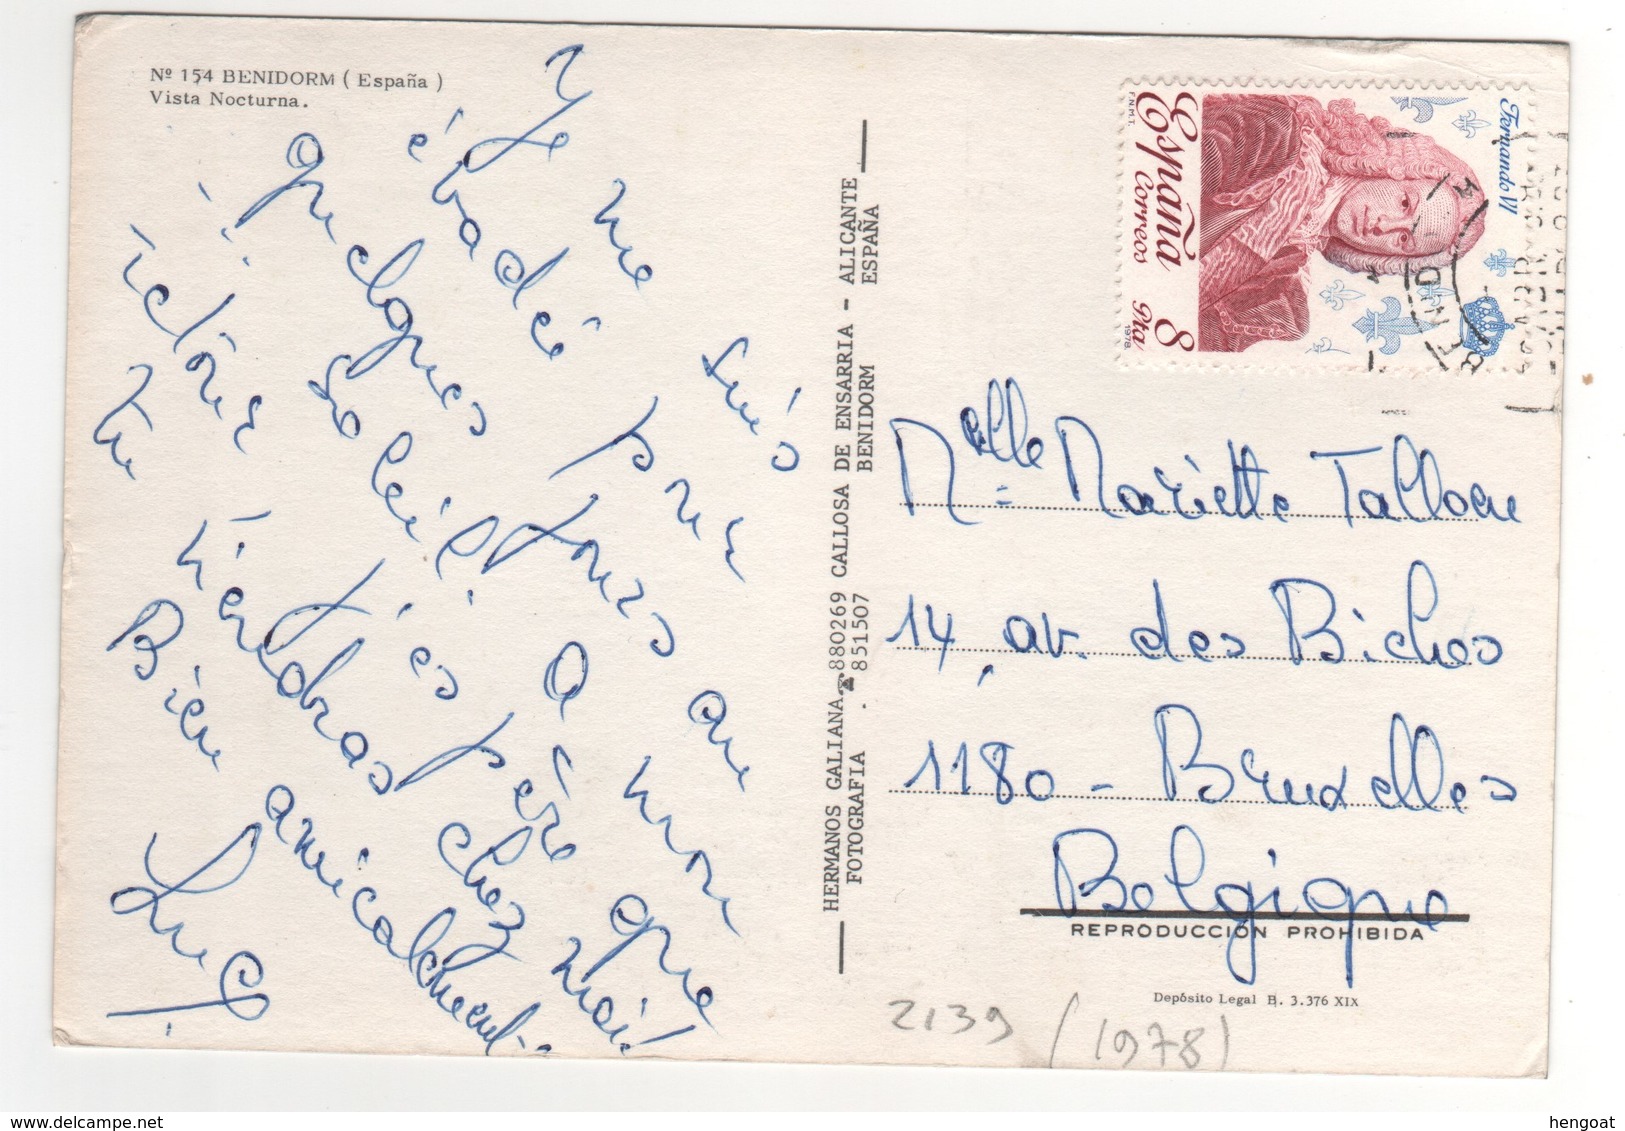 Nº 154 BENIDORM ( España )
Vista Nocturna.
Je me suis
évadé pour
quelques jours au
soleil! A mon
retour j'espère que
tu viendras chez moi!
Bien amicalement -
Luc
HERMANOS GALIANA 880269 CALLOSA DE ENSARRIA - ALICANTE
FOTOGRAFIA . 851507 BENIDORM ESPAÑA
España
Correos
8 Pta
Fernando VI
F.N.M.T.
1978
BENID
Melle Mariette Talloen
14, av. des Biches
1180 - Bruxelles
Belgique
REPRODUCCIÓN PROHIBIDA
Depósito Legal B. 3.376 XIX
2139 (1978)
hengoat